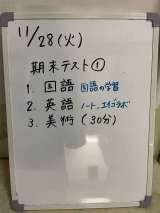 11/28(火)
期末テスト①
1. 国語 国語の学習
2. 英語 ノート、エイゴラボ
3. 美術 (30分)